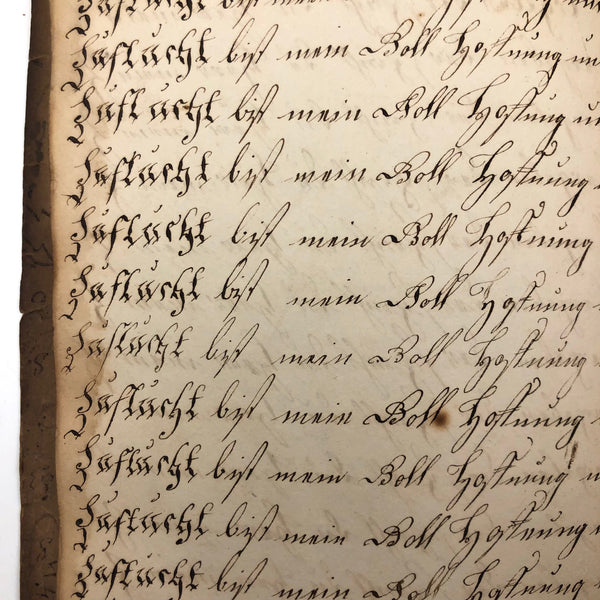 Zuflucht bist mein Boll Hoffnung un
Zuflucht bist mein Boll Hoffnung u
Zuflucht bist mein Boll Hoffnung
Zuflucht bist mein Boll Hoffnung
Zuflucht bist mein Boll Hoffnung
Zuflucht bist mein Boll Hoffnung
Zuflucht bist mein Boll Hoffnung
Zuflucht bist mein Boll Hoffnung
Zuflucht bist mein Boll Hoffnung
Zuflucht bist mein Boll Hoffnung